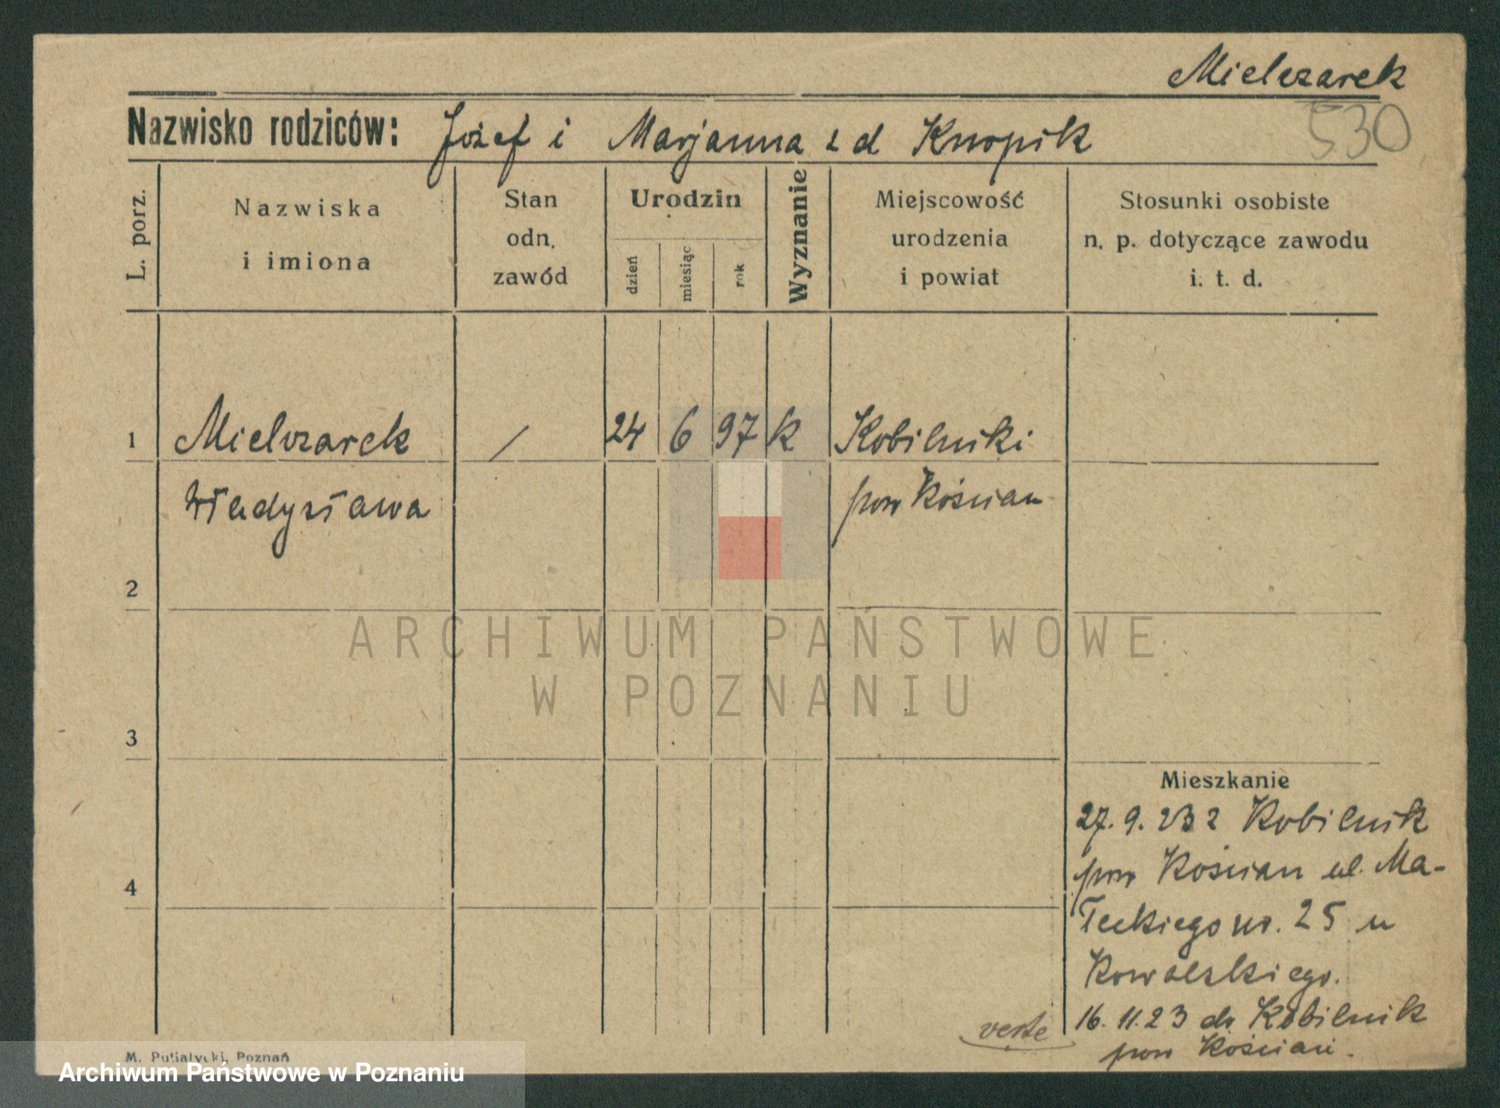 Mielczarek
Nazwisko rodziców: Józef i Marjanna z d Knopik
530
L. porz.
Nazwiska
i imiona
Stan
odn.
zawód
Urodzin
dzień
miesiąc
rok
Wyznanie
Miejscowość
urodzenia
i powiat
Stosunki osobiste
n. p. dotyczące zawodu
i. t. d.
1 Mielczarek / 24 6 97 k Kobilniki
Władysława pow Kościan
2
ARCHIWUM PAŃSTWOWE
W POZNANIU
3
Mieszkanie
27. 9. 23 z Kobilnik
pow Kościan ul. Ma-
4
łeckiego nr. 25 u
Kowalskiego.
16. 11. 23 do Kobilnik
pow Kościan.
verte
M. Putiatycki, Poznań
Archiwum Państwowe w Poznaniu